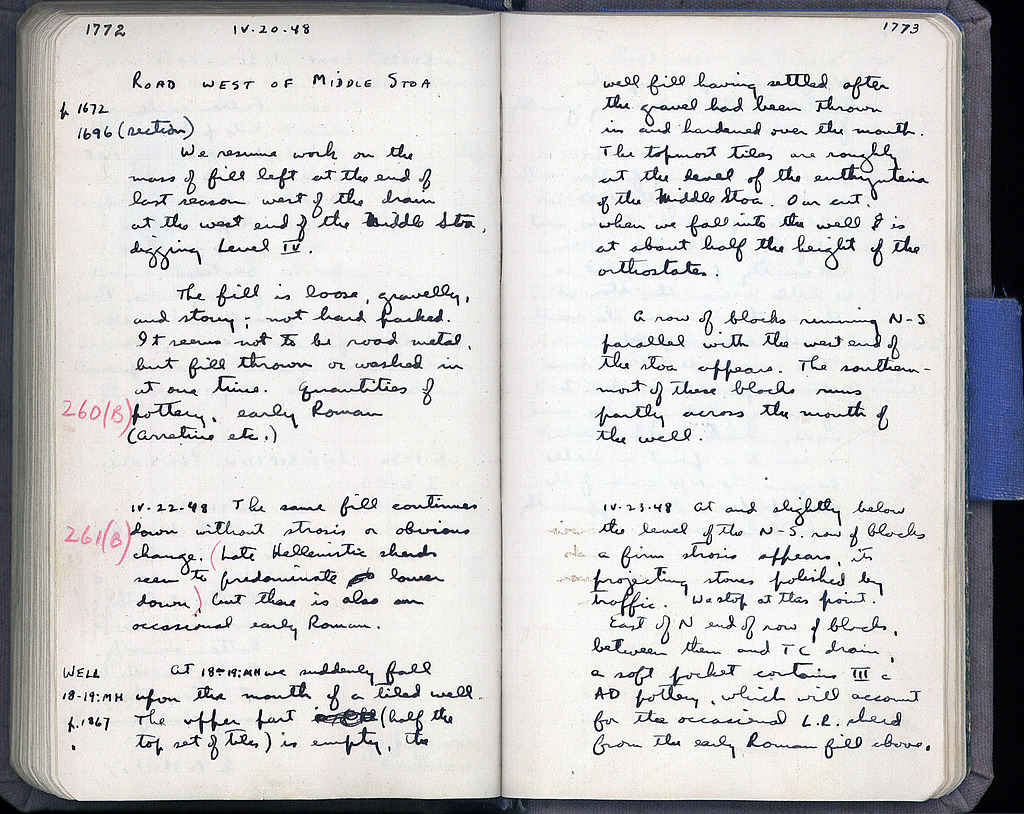 1772 IV·20·48
ROAD WEST OF MIDDLE STOA
p 1672
1696 (section)
We resume work on the
mass of fill left at the end of
last season west of the drain
at the west end of the Middle Stoa,
digging Level IV.
The fill is loose, gravelly,
and stony; not hard packed.
It seems not to be road metal,
but fill thrown or washed in
at one time. Quantities of
260(B) pottery, early Roman
(Arretine etc.)
IV-22-48 The same fill continues
261(B) down without strosis or obvious
change. (Late Hellenistic sherds
seem to predominate lower
down) but there is also an
occasional early Roman.
WELL At 18-19:MH we suddenly fall
18-19:MH upon the mouth of a tiled well.
p.1867 The upper part (half the
top set of tiles) is empty, the
1773
well fill having settled after
the gravel had been thrown
in and hardened over the mouth.
The topmost tiles are roughly
at the level of the euthynteria
of the Middle Stoa. Our cut,
when we fall into the well is
at about half the height of the
orthostates.
A row of blocks running N-S
parallel with the west end of
the stoa appears. The southern-
most of these blocks runs
partly across the mouth of
the well.
IV-23-48 At and slightly below
the level of the N-S. row of blocks
a firm strosis appears, its
projecting stones polished by
traffic. We stop at this point.
East of N end of row of blocks,
between them and TC drain,
a soft pocket contains III c
AD pottery, which will account
for the occasional L.R. sherd
from the early Roman fill above.